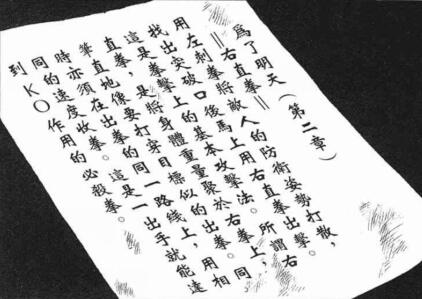 為了明天（第二章）
＝右直拳＝
用左刺拳將敵人的防衛姿勢打散，
找出突破口後馬上用右直拳出擊。
這是拳擊上的基本攻擊法。所謂右
直拳，是將身體重量聚於右拳上，
筆直地像要打穿目標似的出拳。同
時亦須在出拳的同一路線上，用相
同的速度收拳。這是一出手就能達
到KO作用的必殺拳。